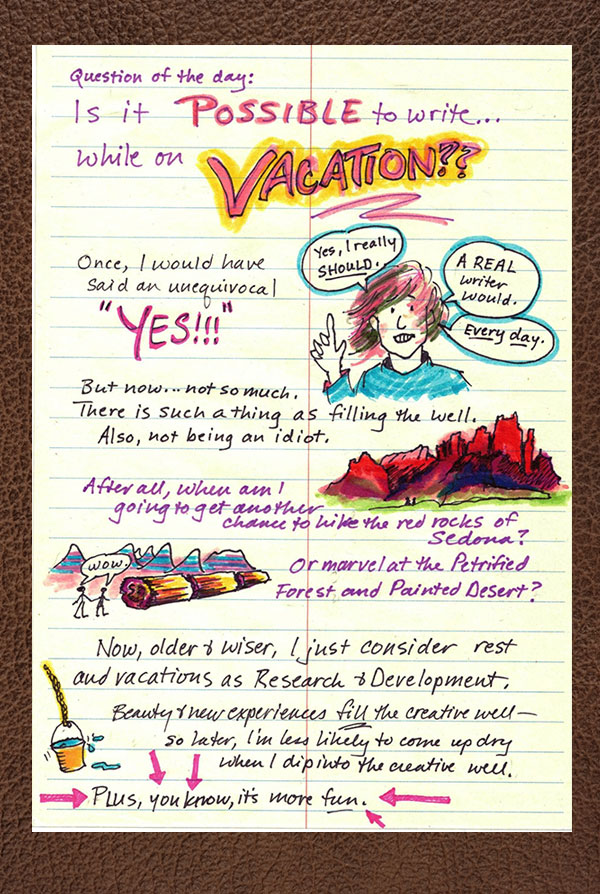 Question of the day:
Is it POSSIBLE to write...
while on VACATION??
Once, I would have
said an unequivocal
"YES!!!"
Yes, I really
SHOULD.
A REAL
writer
would.
Every day.
But now... not so much.
There is such a thing as filling the well.
Also, not being an idiot.
After all, when am I
going to get another
chance to hike the red rocks of
Sedona?
wow.
Or marvel at the Petrified
Forest and Painted Desert?
Now, older & wiser, I just consider rest
and vacations as Research & Development.
Beauty & new experiences fill the creative well—
so later, I'm less likely to come up dry
when I dip into the creative well.
Plus, you know, it's more fun.